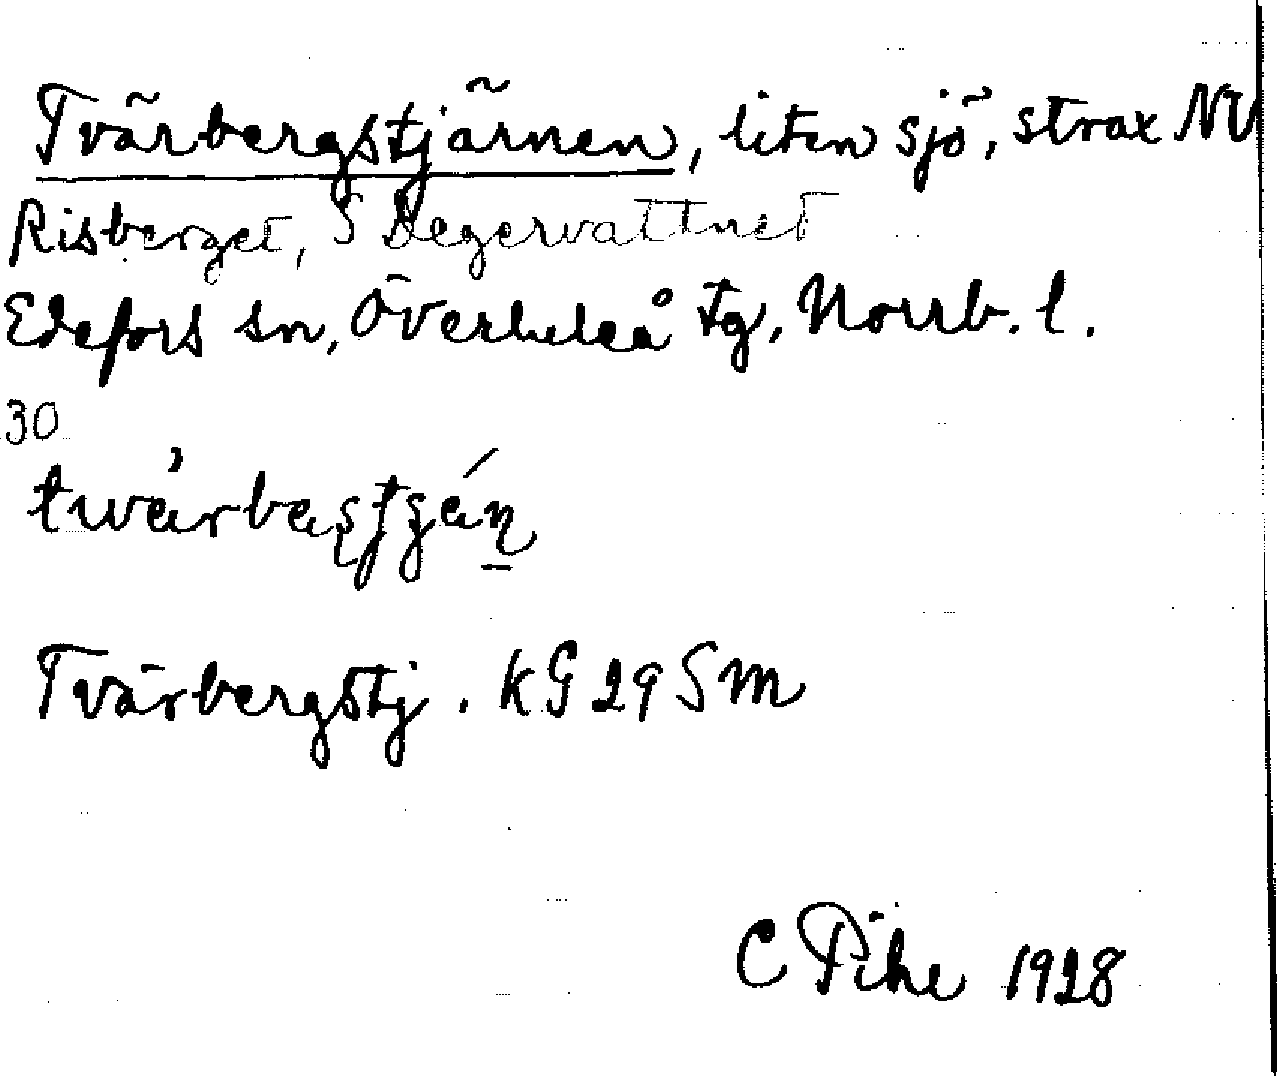 Tvärbergstjärnen, liten sjö, strax NV
Risberget, S Degervattnet
Edefors sn, Överluleå tg, Norrb. l.
30
Tvärbergstj. KG 29 Sm
C Pihe 1928